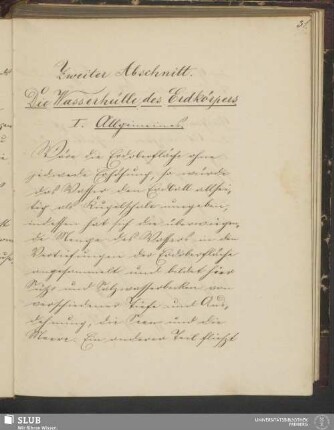 3.
Zweiter Abschnitt.
Die Wasserhülle des Erdkörpers
I. Allgemeines.
Wäre die Erdoberfläche ohne
jedwede Erhöhung, so würde
das Wasser den Erdball allsei-
tig als Kugelschale umgeben;
indessen hat sich die überwiegen-
de Menge des Wassers in den
Vertiefungen der Erdoberfläche
angesammelt und bildet hier
Süß- und Salzwasserbecken von
verschiedener Tiefe und Aus-
dehnung, die Seen und die
Meere. Ein anderer Teil fließt
SLUB
Wir führen Wissen.
UNIVERSITÄTSBIBLIOTHEK
FREIBERG